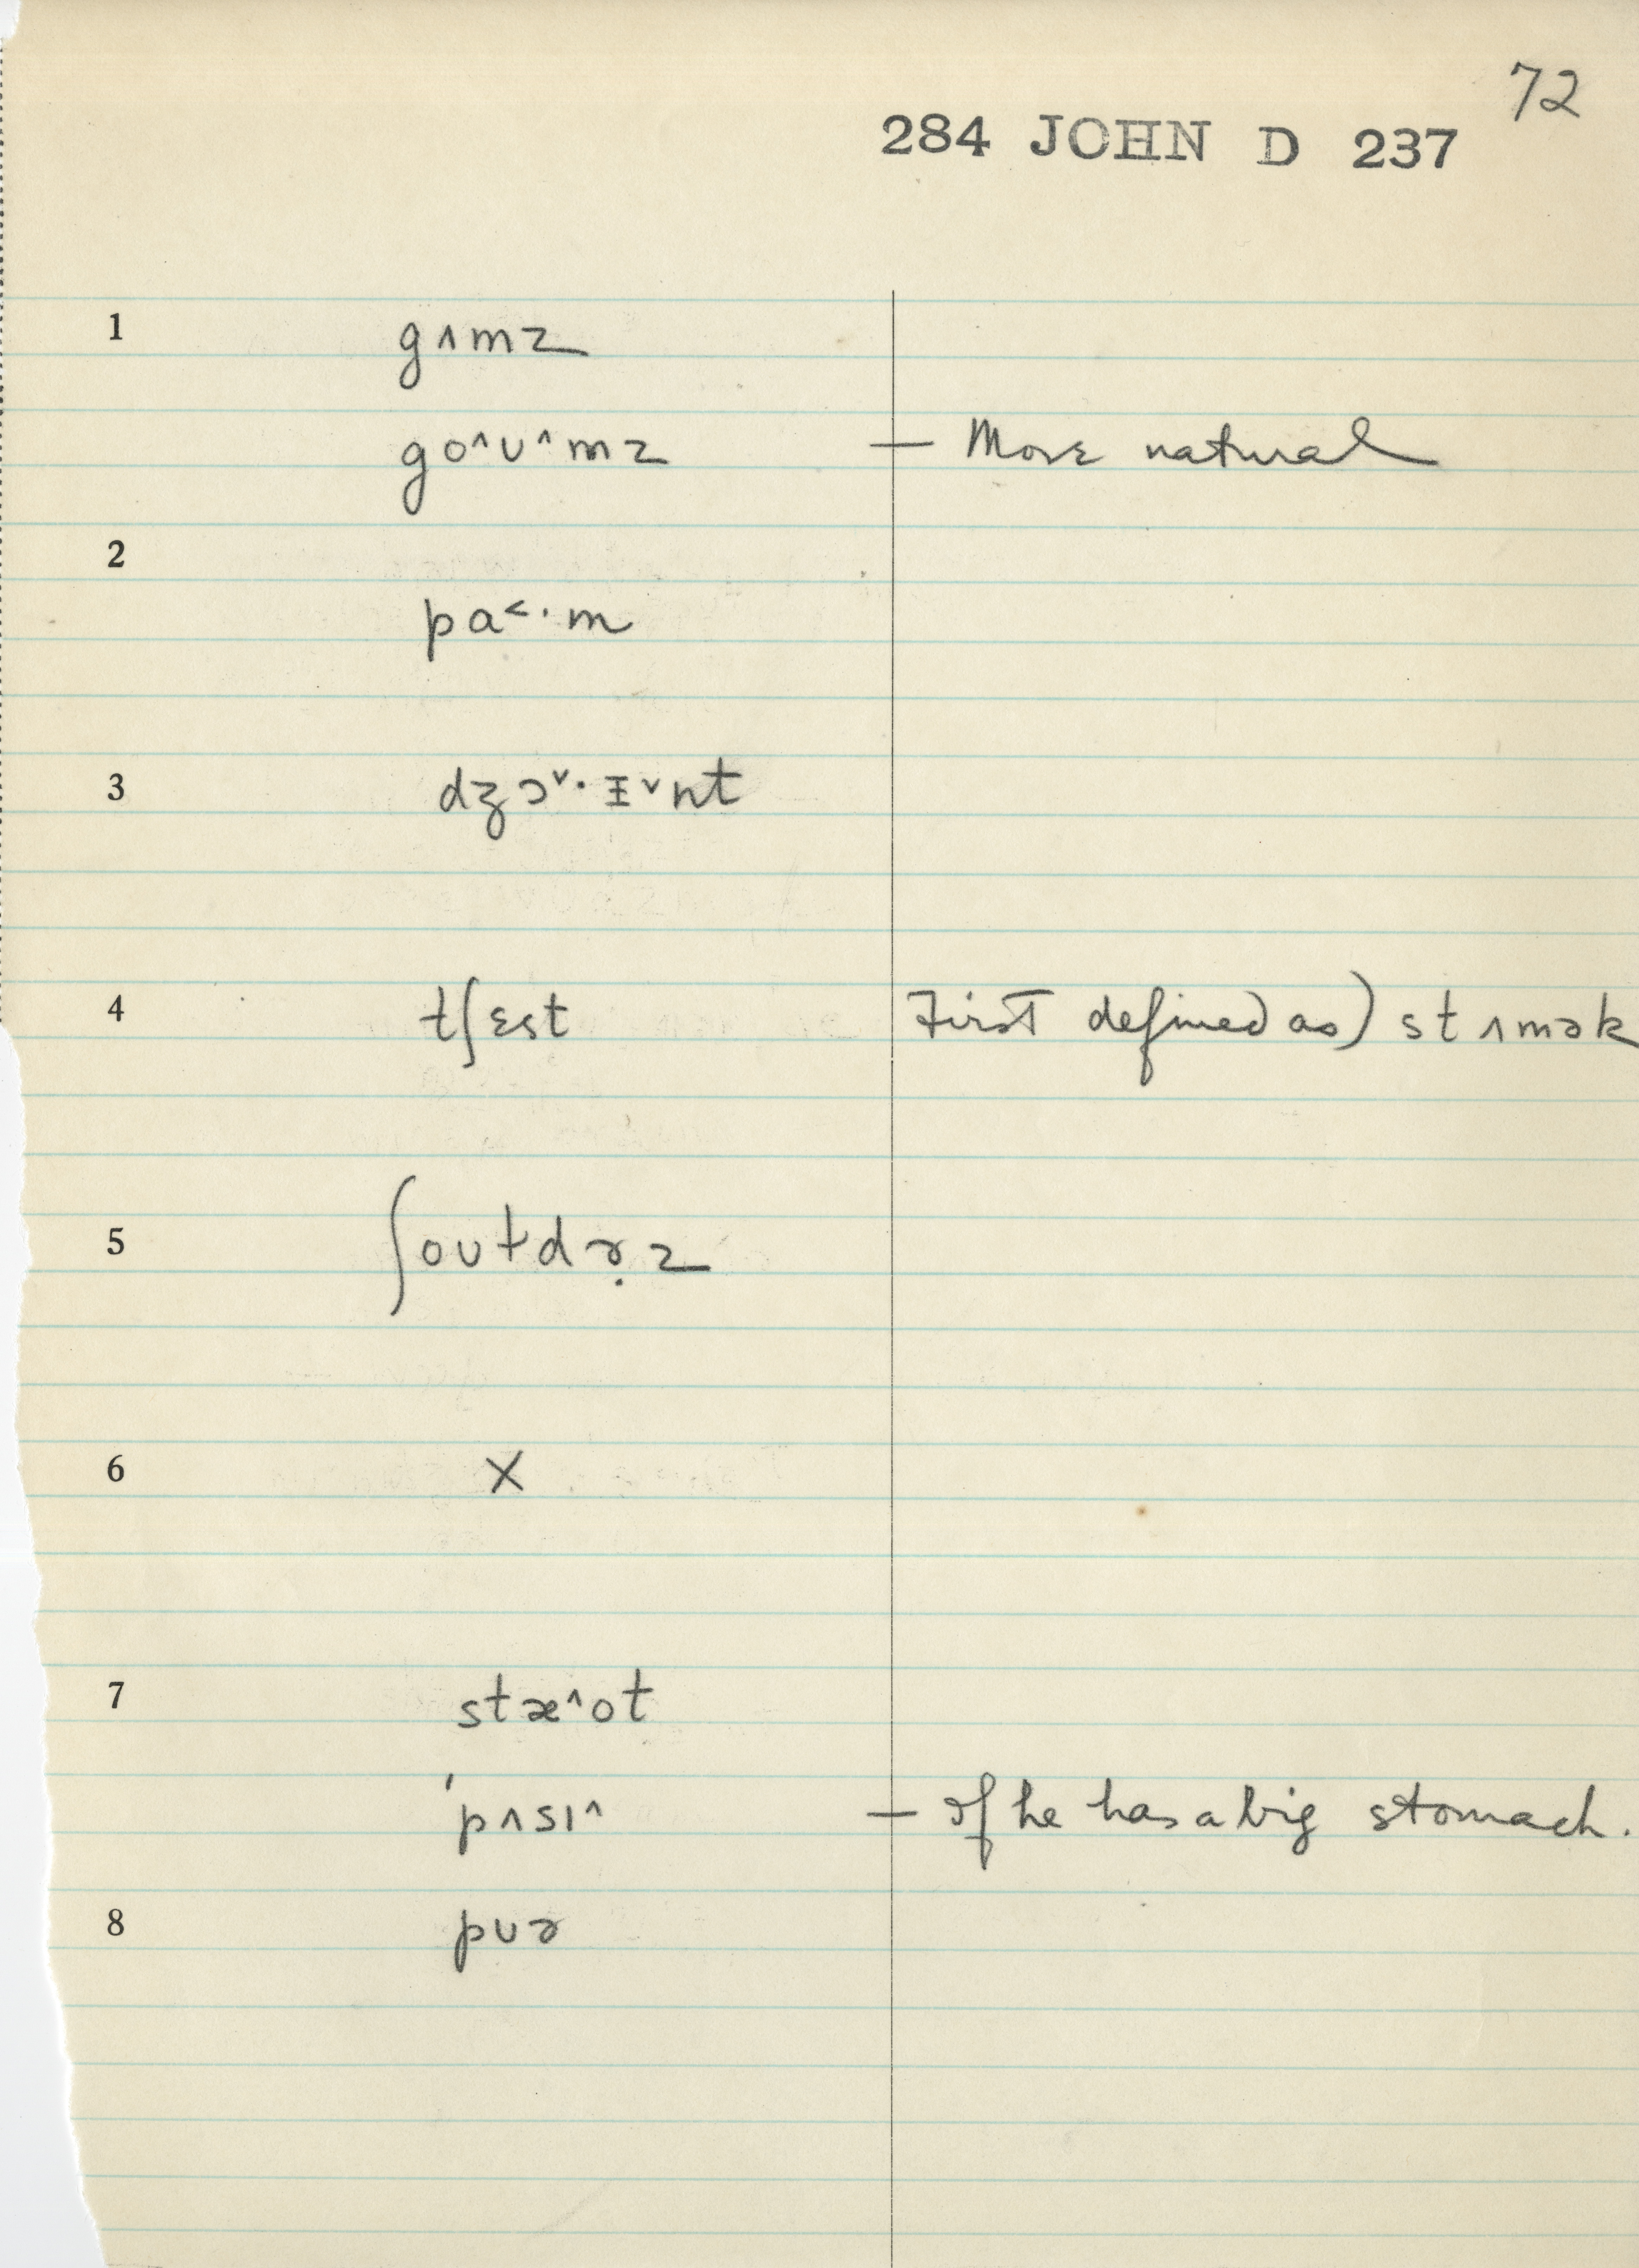 72
284 JOHN D 237
1 gʌmz
go^ʊ^mz — More natural
2
pa<·m
3 dʒɔˇ·ɪˇnt
4 tʃɛst First defined as) stʌmək
5 ʃoʊɫdɚ̣z
6 X
7 stæ^ot
'pʌsɪ^ — If he has a big stomach.
8 pʊɚ